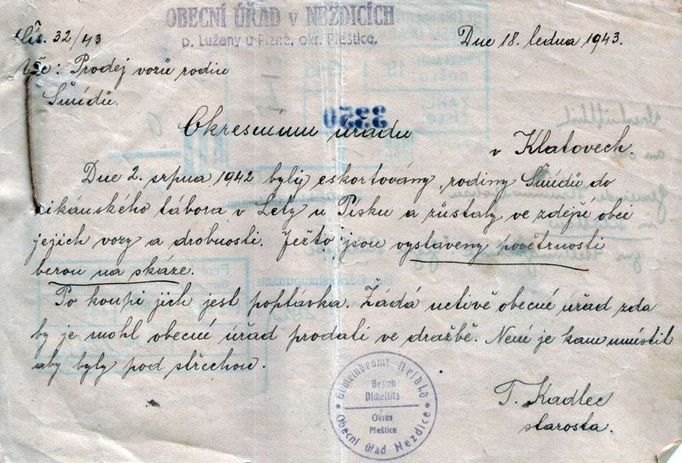 OBECNÍ ÚŘAD v NEZDICÍCH
p. Lužany u Plzně, okr. Přeštice,
Čís. 32/43
Dne 18. ledna 1943.
Věc: Prodej vozů rodin
Šmídů.
3350
Okresnímu úřadu
v Klatovech.
Dne 2. srpna 1942 byly eskortovány rodiny Šmídů do
cikánského tábora v Lety u Písku a zůstaly ve zdejší obci
jejich vozy a drobnosti. Ježto jsou vystaveny povětrnosti
berou na zkáze.
Po koupi jich jest poptávka. Žádá uctivě obecné úřad zda
by je mohl obecné úřad prodati ve dražbě. Není je kam umístit
aby byly pod střechou.
Gemeindeamt
Bezirk
Okres
Přeštice
Obecní úřad Nezdice
T. Kadlec
starosta.